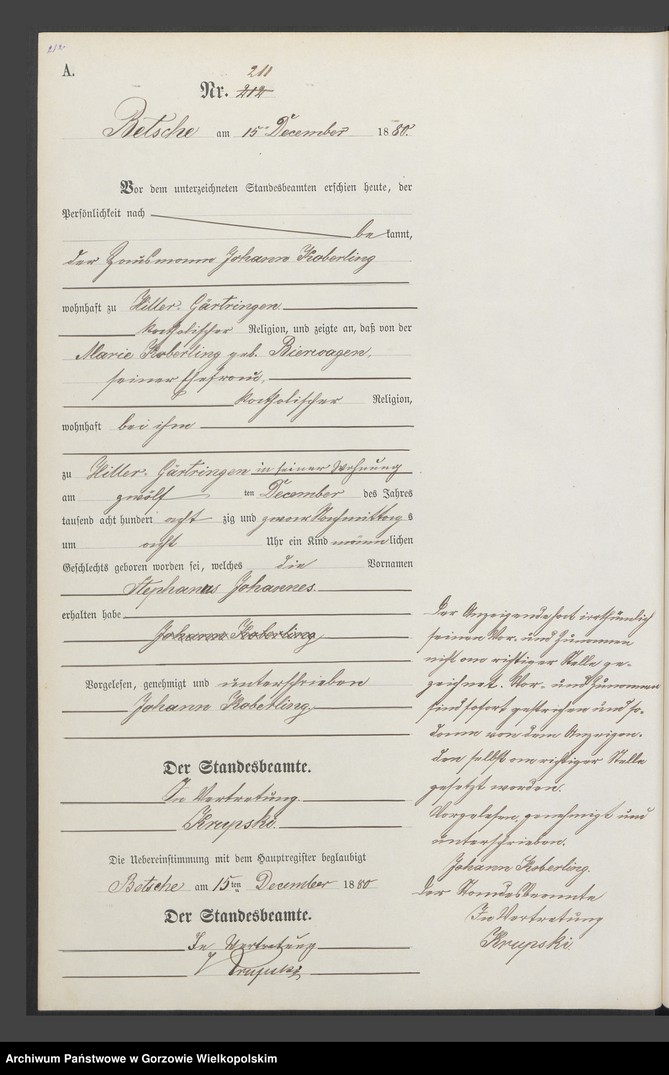 212
A.
211
Nr. 212
Betsche am 15t December 1880.
Vor dem unterzeichneten Standesbeamten erschien heute, der
Persönlichkeit nach
be kannt,
der Hausmann Johann Koberling
wohnhaft zu Hiller-Gärtringen
katholischer Religion, und zeigte an, daß von der
Marie Koberling geb. Bierwagen,
seiner Ehefrau,
katholischer Religion,
wohnhaft bei ihm
zu Hiller-Gärtringen in seiner Wohnung
am zwölf ten December des Jahres
tausend acht hundert acht zig und zwar Nachmittag s
um acht Uhr ein Kind männ lichen
Geschlechts geboren worden sei, welches die Vornamen
Stephanus Johannes.
erhalten habe
Johann Koberling
Vorgelesen, genehmigt und unterschrieben
Johann Koberling.
Der Standesbeamte.
In Vertretung
Krupski.
Die Uebereinstimmung mit dem Hauptregister beglaubigt
Betsche am 15ten December 1880
Der Standesbeamte.
In Vertretung
Krupski
Der Anzeigende hat irrthümlich
seinen Vor- und Zunamen
nicht an richtiger Stelle ge-
zeichnet. Vor- und Zunamen
sind sofort gestrichen und so-
dann von dem Anzeigen-
den selbst an richtiger Stelle
gesetzt worden.
Vorgelesen, genehmigt und
unterschrieben.
Johann Koberling.
Der Standesbeamte
In Vertretung
Krupski
Archiwum Państwowe w Gorzowie Wielkopolskim